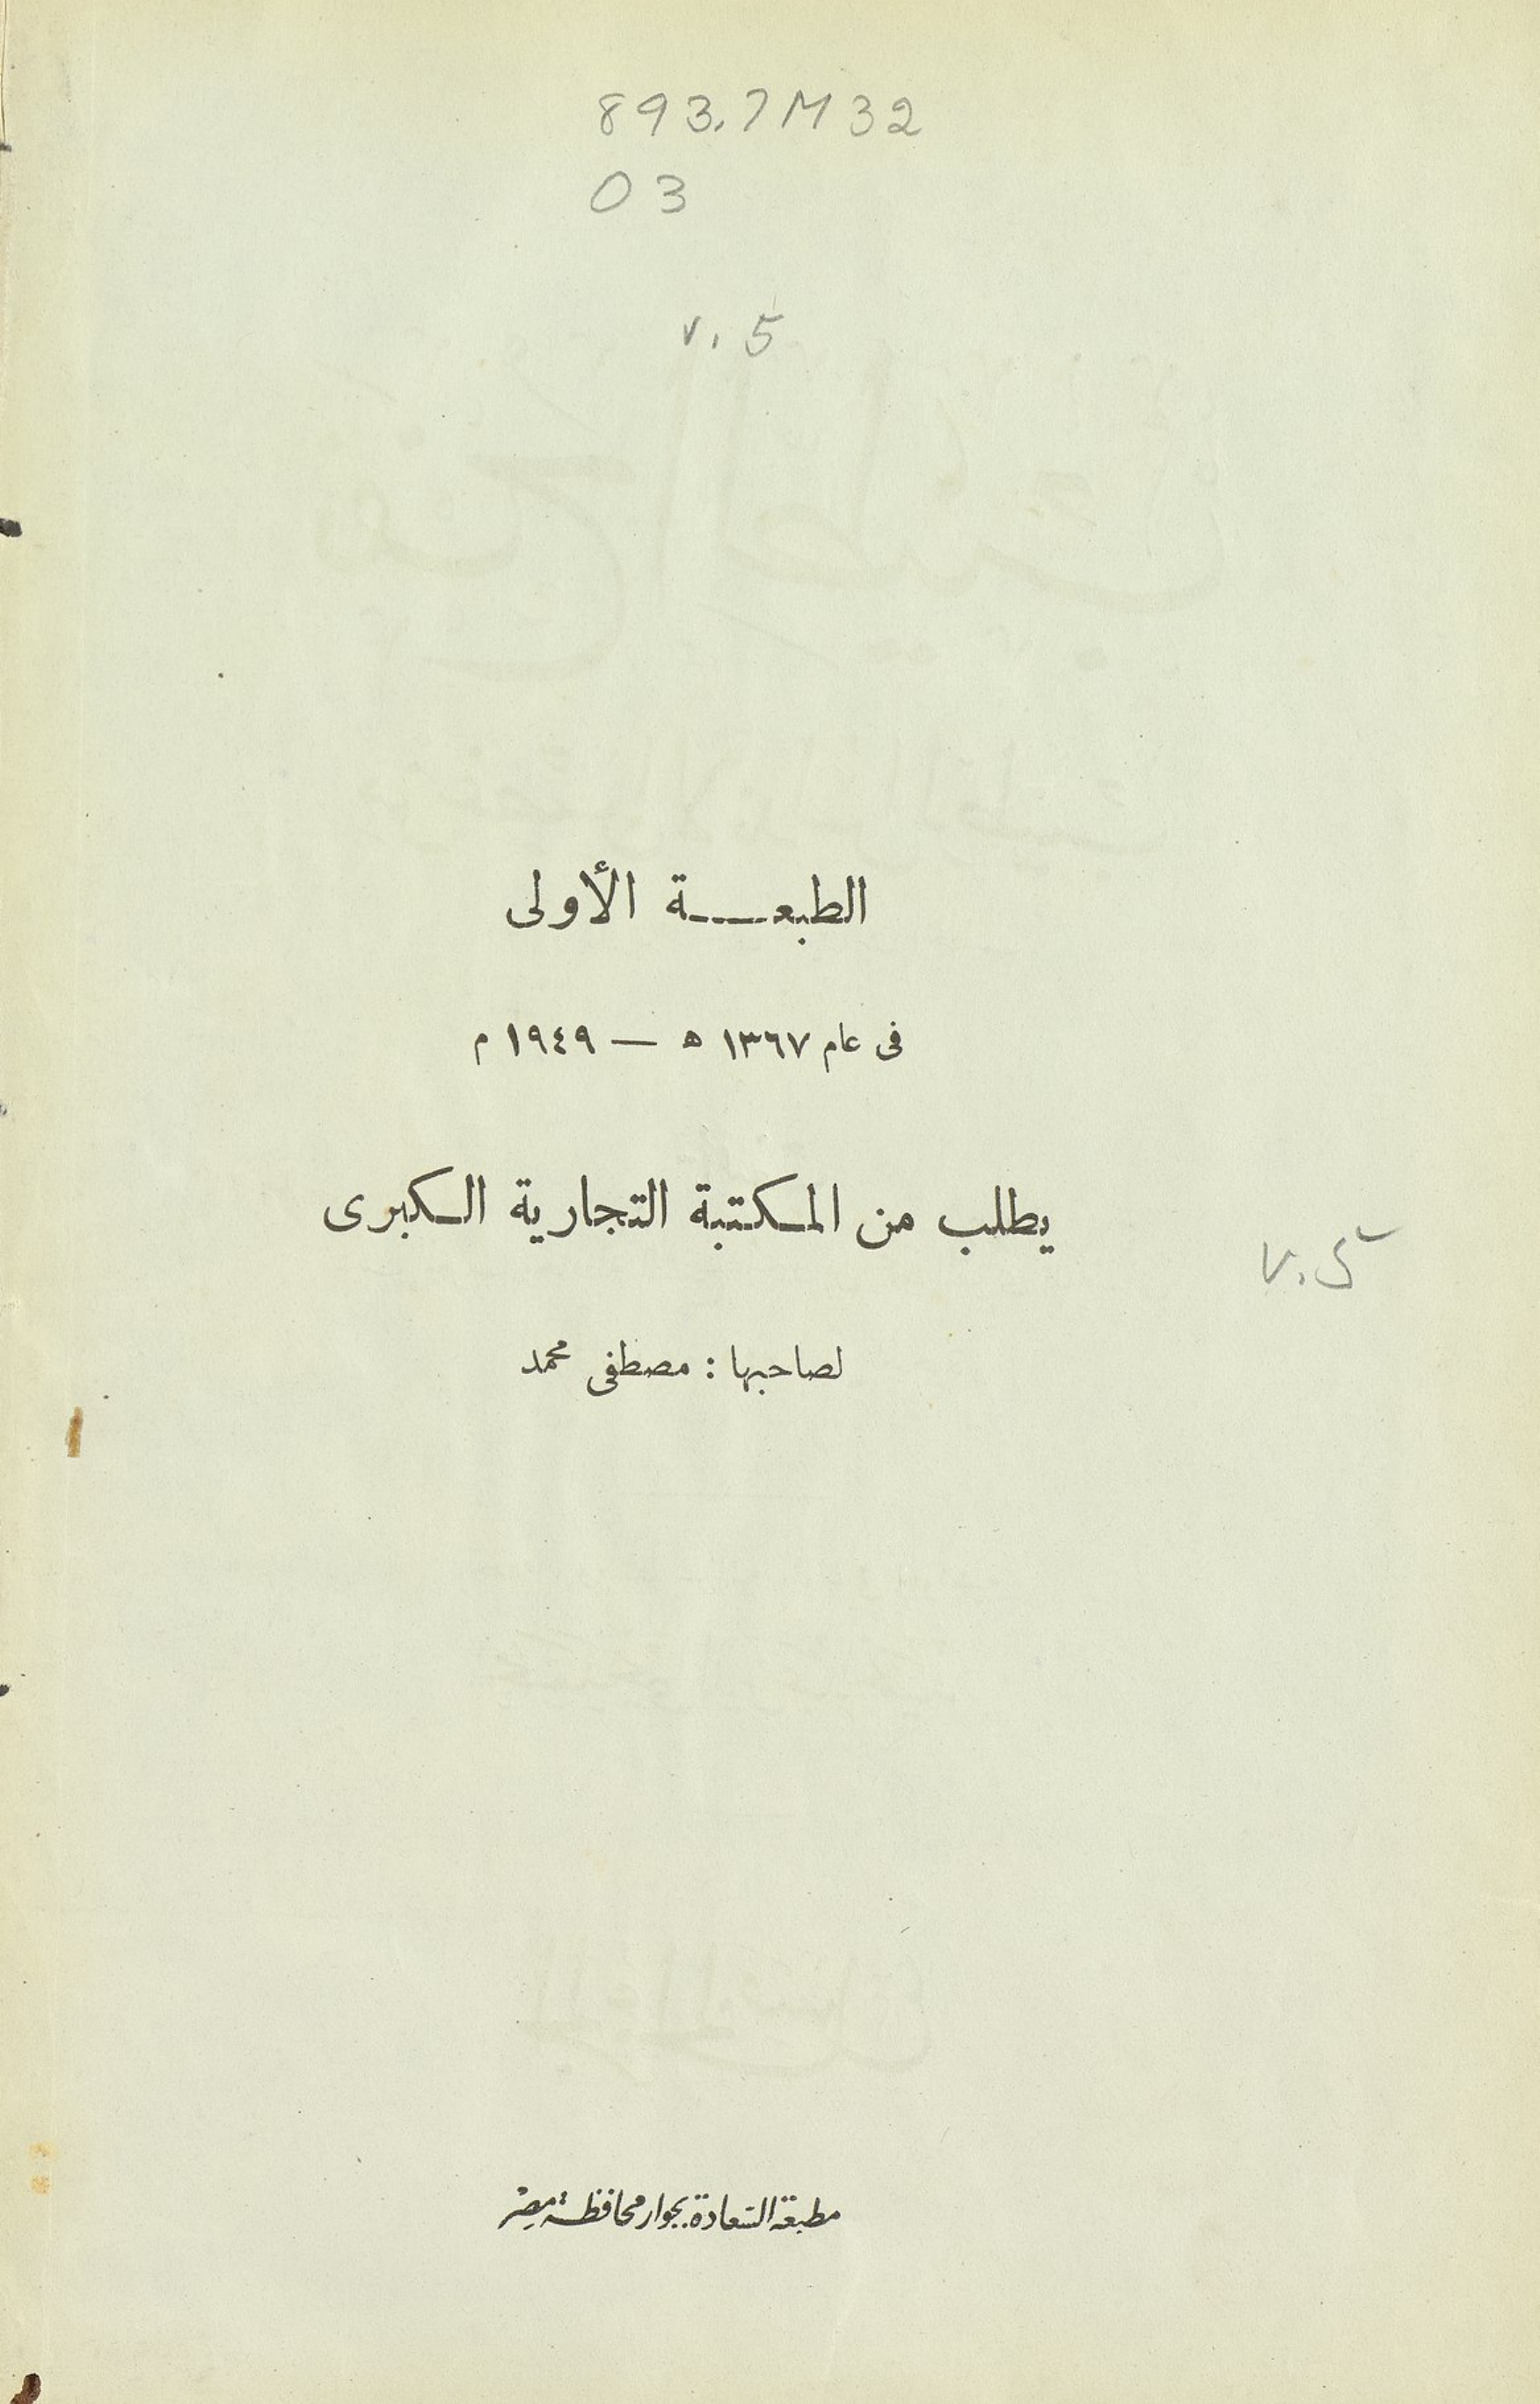 893.7M32
03
v. 5
الطبعة الأولى
فى عام ١٣٦٧ ه — ١٩٤٩ م
يطلب من المكتبة التجارية الكبرى
v. 5
لصاحبها : مصطفى محمد
مطبعة السعادة بجوار محافظة مصر